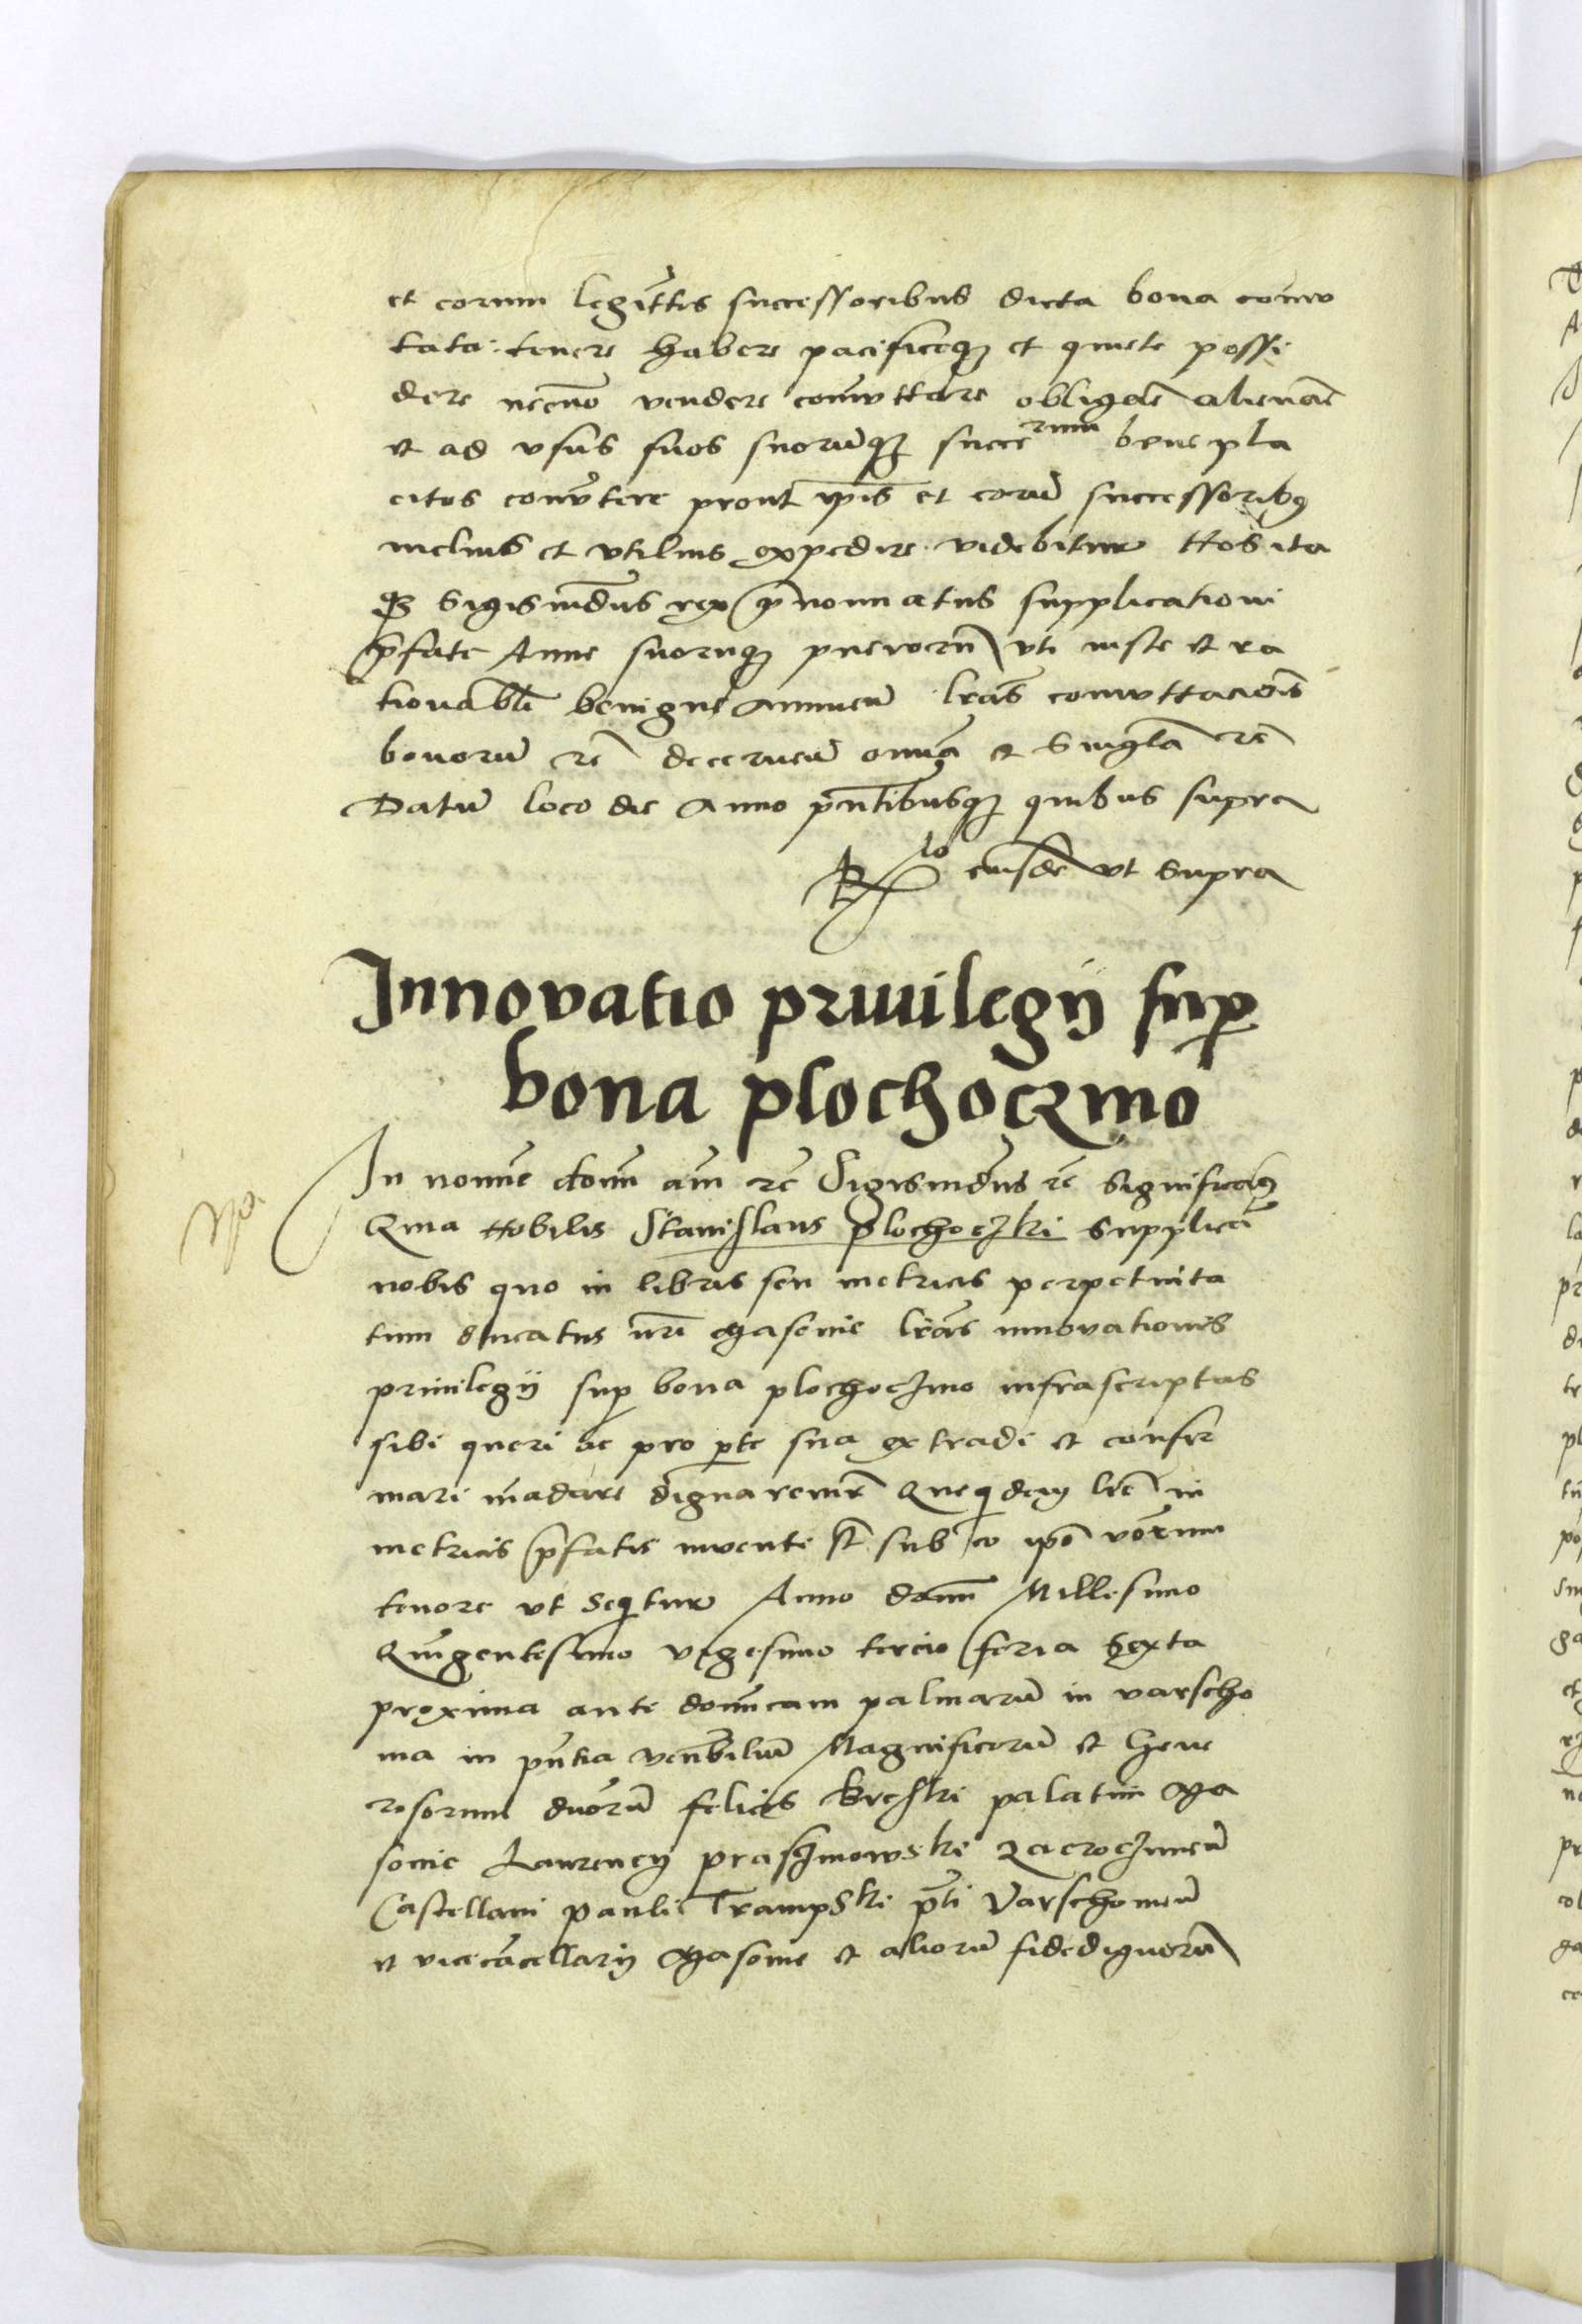 et eorum legittis successoribus dicta bona comu
tata tenere habere pacificeqз et quiete possi
dere necno vendere comuttare obligare alienare
et ad usus suos suorūqз succerum benepla
citos convtere prout ipīs et eorū successoribз
melius et utilius expedire videbitur Nos ita
qз Sigismūdus rex p̄nominatus supplicationi
p̄fate Anne suoruqз puerorū uti iuste et ra
tionabli benigne annuen lrās comuttacois
bonorū rc̄ decernen omia et Singla rc̄
Datū loco die Anno pn̄tibusqз quibus supra
Rlo eiusdē ut supra
Innovatio privilegij sup
bona plochoczino
Ma
In nomīe domī am̄ rc̄ Sigismūdus rc̄ Significamз
Quia Nobilis Stanislaus plochoczki Supplicā
nobis quo in libris seu metricis perpetuita
tum ducatus nrī Masovie lrās innovationis
privilegii sup bona plochoczino infrascriptas
sibi queri ac pro pte sua extradi et confir
mari mādare dignaremr Quequidem lrē in
metricis p̄fatis invente st̄ sub eo ipō vorum
tenore ut sequitur Anno domī Millesimo
Quīgentesimo vigesimo tercio feria Sexta
proxima ante domīcam palmarū in varscho
via in pn̄tia venbiliū Magnificorū et Gene
rosorum dnorū felicis Breski palatini Ma
sovie Laurency prasmowski Zacroczimeū
Castellani pauli Trampski pti Varschovieū
et vicecācellarij Masovie et aliorū fidedignorū